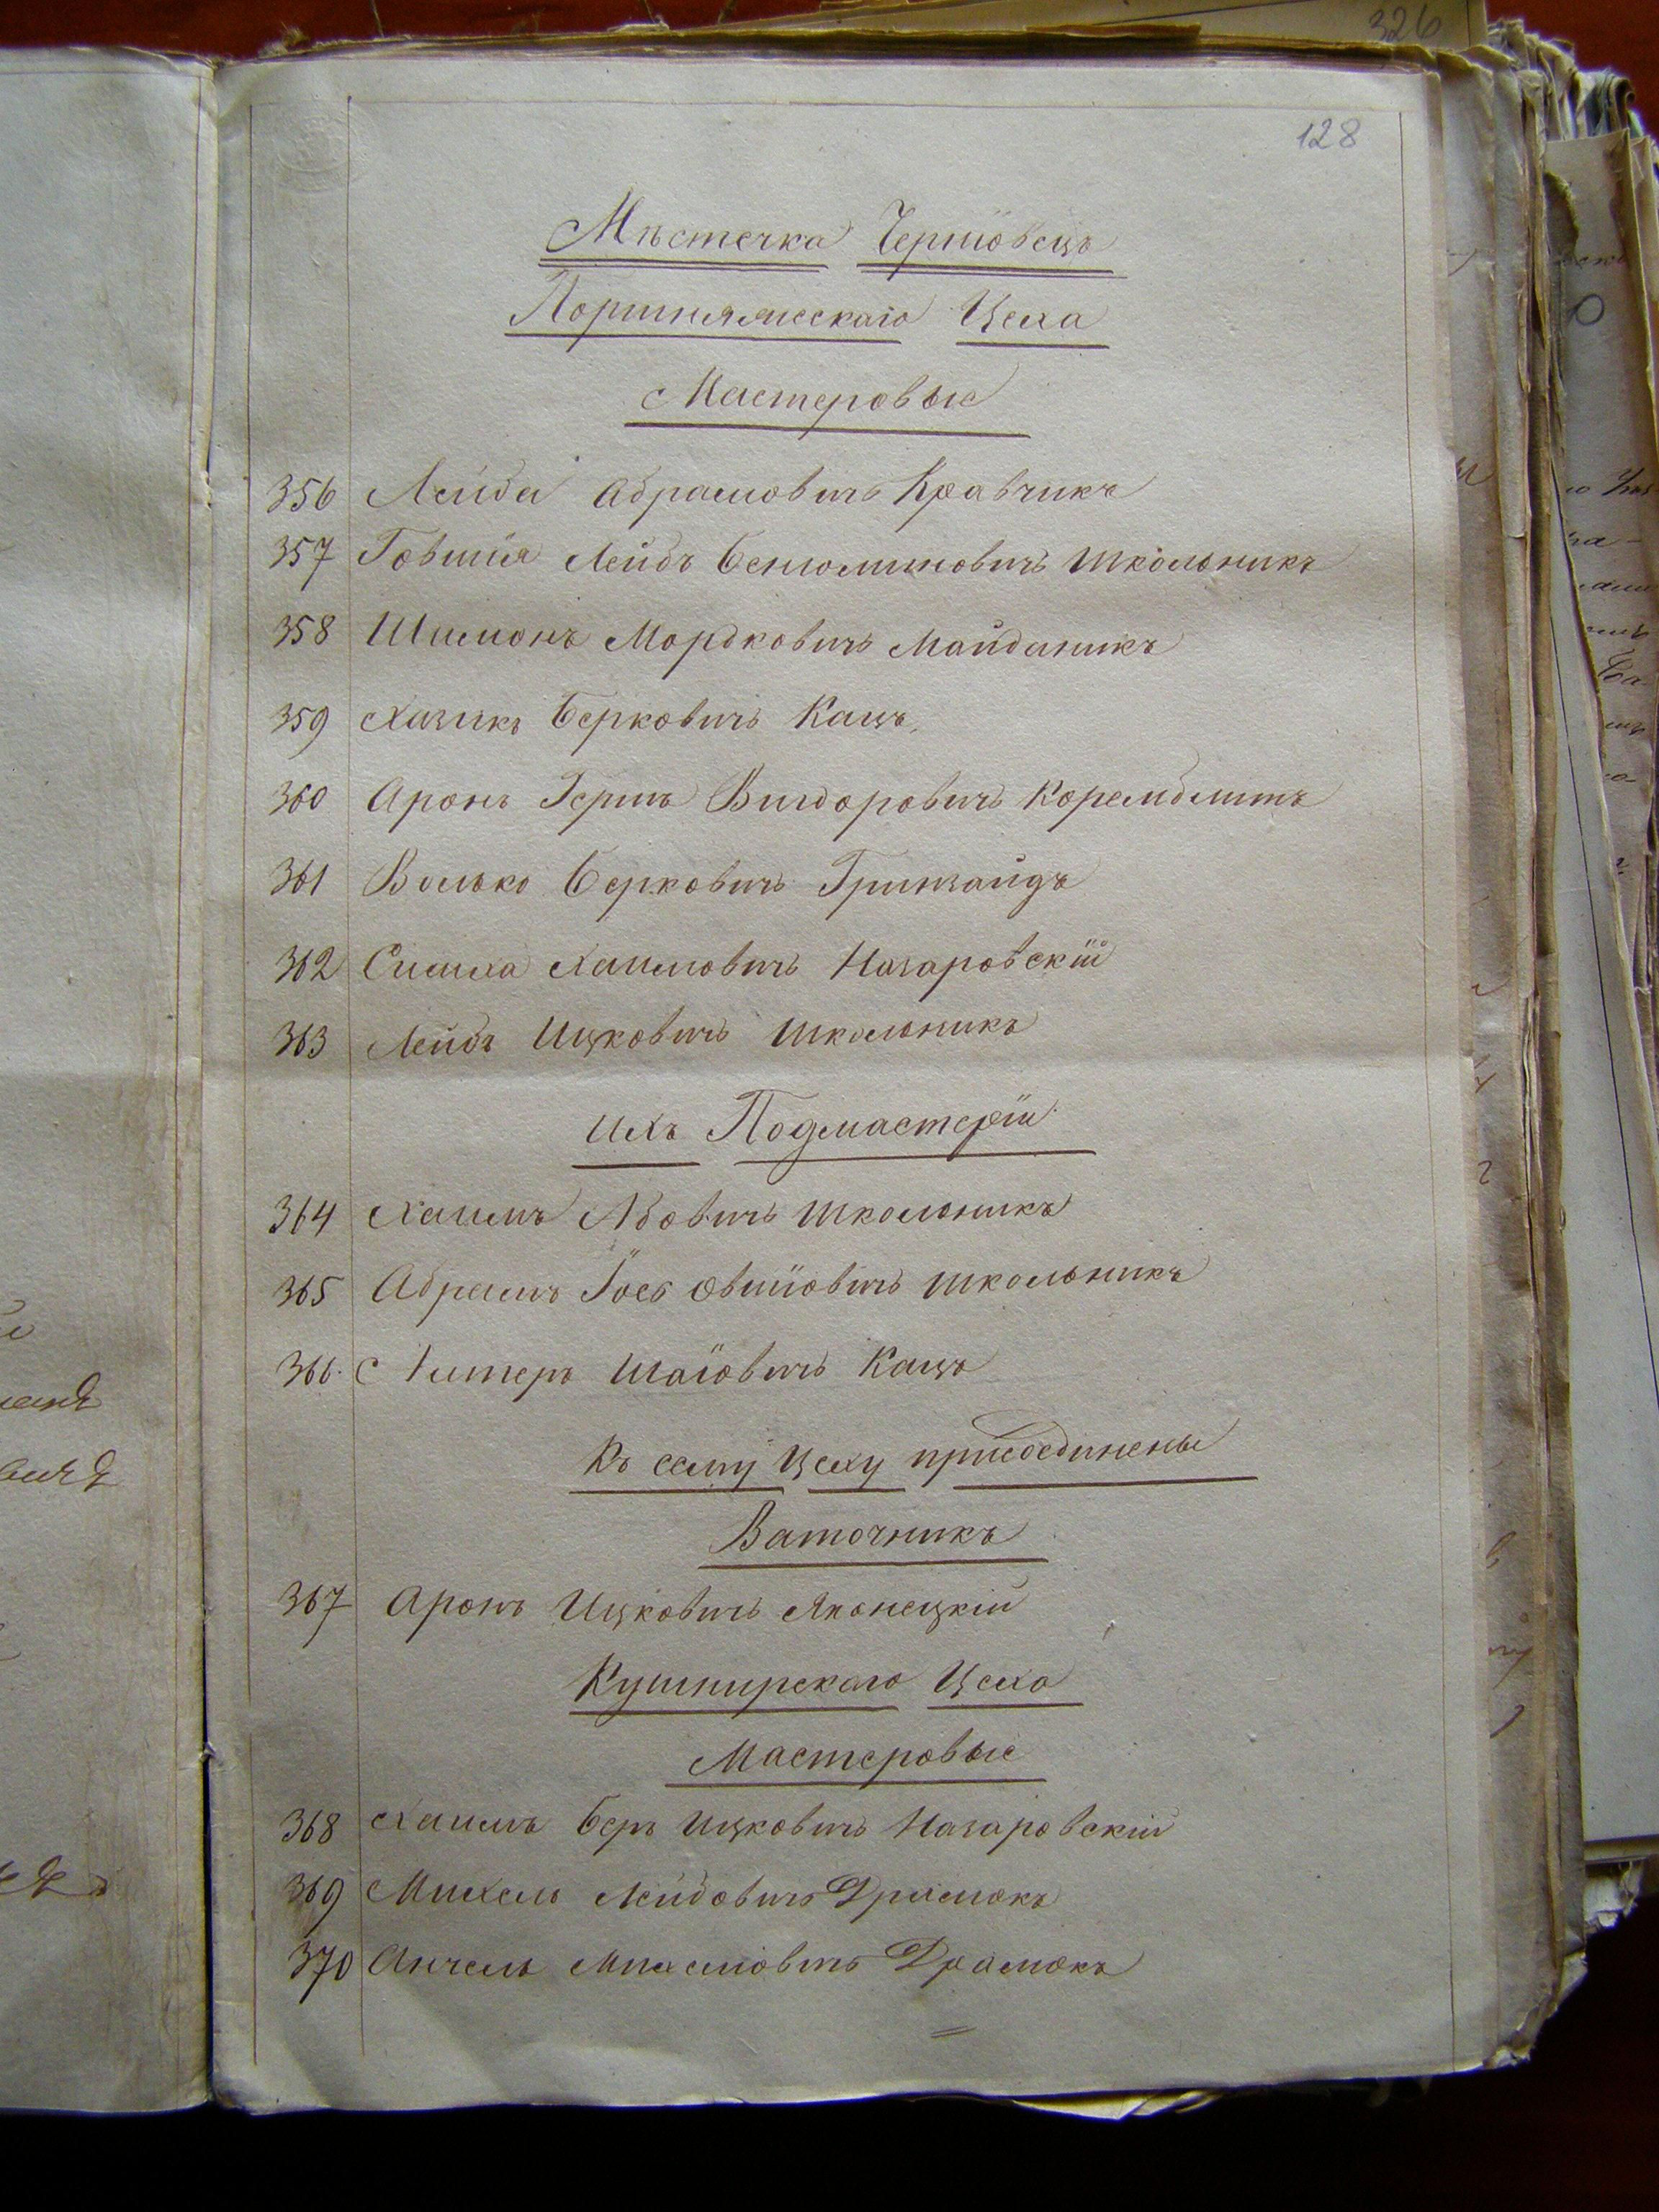 326
128
Мѣстечка Черніовецъ
Портняжескаго Цеха
Мастеровые
356 Лейба Абрамовичъ Кравчикъ
357 Говшія Лейбъ Бенюминовичъ Школьникъ
358 Шимонъ Мордковичъ Майданикъ
359 Хаимъ Берковичъ Кацъ
360 Аронъ Гершъ Вигдоровичъ Коремблитъ
361 Волько Берковичъ Гринзайдъ
362 Симха Хаимовичъ Назаровскій
363 Лейбъ Ицковичъ Школьникъ
ихъ Подмастерїи
364 Хаимъ Абовичъ Школьникъ
365 Абрамъ Іосъ Овшіовичъ Школьникъ
366 Шаіовичъ Кацъ
Къ сему Цеху присоединены
Ваточникъ
367 Аронъ Ицковичъ Японецкій
Кушнирскаго Цеха
Мастеровые
368 Хаимъ Беръ Ицковичъ Назаровскій
369 Михель Лейбовичъ Драмокъ
370 Анчель Михелювичъ Драмокъ